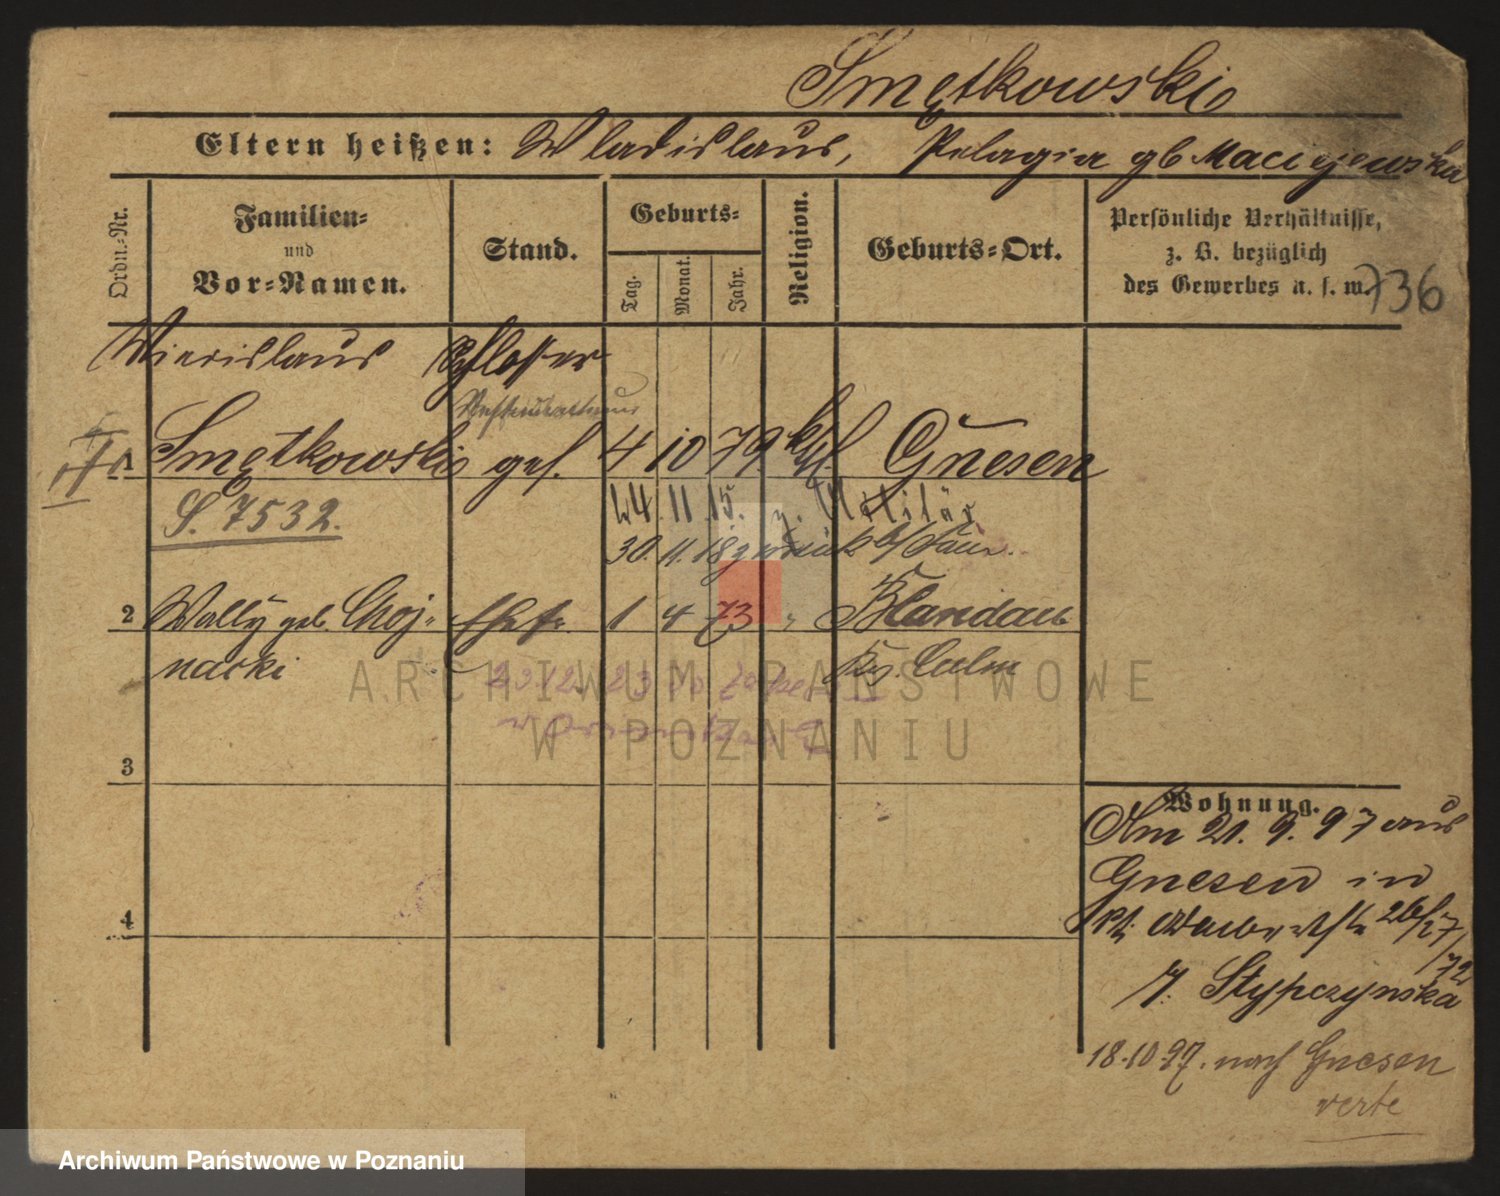 Smętkowski
Eltern heißen: Wladislaus, Pelagia gb Maciejewska
Ordn.-Nr.
Familien-
und
Vor-Namen.
Stand.
Geburts-
Tag.
Monat.
Jahr.
Religion.
Geburts-Ort.
Persönliche Verhältnisse,
z. B. bezüglich
des Gewerbes u. s. w.
736
Schlosser
1 Smętkowski ges. 4 10 79 kth Gnesen
S. 7532.
14. 11. 15. z. Militär
30. 11. 18 zurück
2 Wally geb. Choj- Ehefr. 1 4 73 " Blandau
nacki Krs. Culm
3
4
Wohnung.
Am 21. 9. 97 aus
Gnesen in
26/27
/72
J. Stypczynska
18.10.97. nach Gnesen
verte
ARCHIWUM PAŃSTWOWE
W POZNANIU
Archiwum Państwowe w Poznaniu